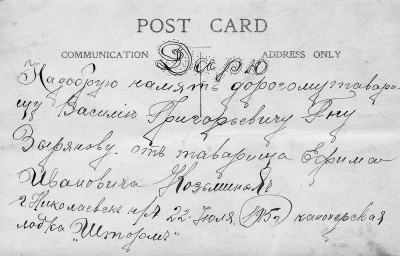 POST CARD
COMMUNICATION
ADDRESS ONLY
Дарю
На добрую память дорогому товари
щу Василію Григорьевичу Гну
Зырянову. отъ товарища Ефима
Ивановича Козьмина
г. Николаевск н/А 22 Июля. канонерская
лодка "Штормъ"